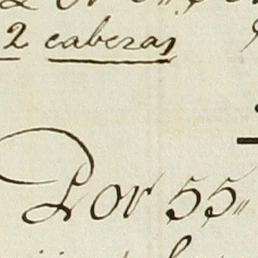 2 cabezas
Por 55"